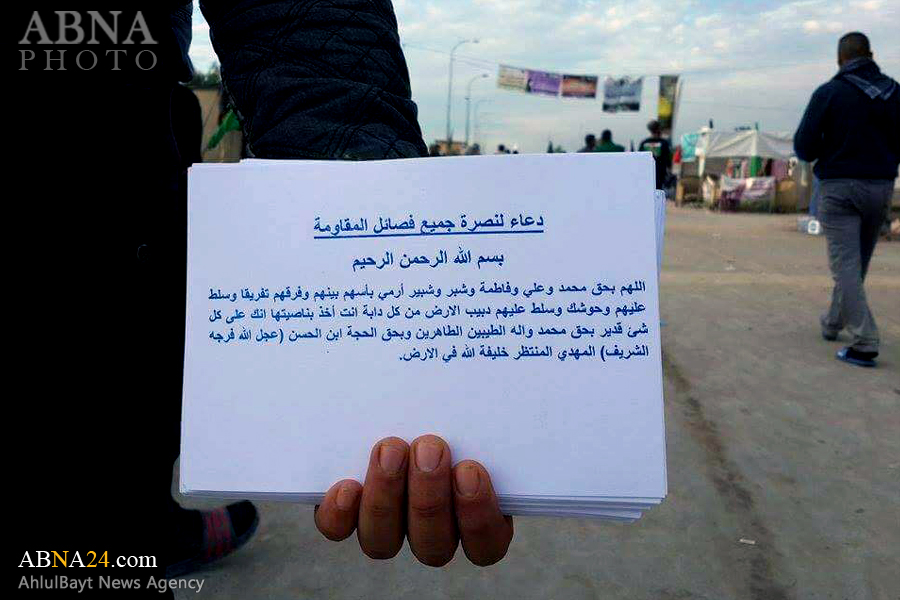 ABNA
PHOTO
دعاء لنصرة جميع فصائل المقاومة
بسم الله الرحمن الرحيم
اللهم بحق محمد وعلي وفاطمة وشبر وشبير أرمي بأسهم بينهم وفرقهم تفريقا وسلط
عليهم وحوشك وسلط عليهم دبيب الارض من كل دابة انت أخذ بناصيتها انك على كل
شئ قدير بحق محمد واله الطيبين الطاهرين وبحق الحجة ابن الحسن (عجل الله فرجه
الشريف) المهدي المنتظر خليفة الله في الارض.
ABNA24.com
AhlulBayt News Agency